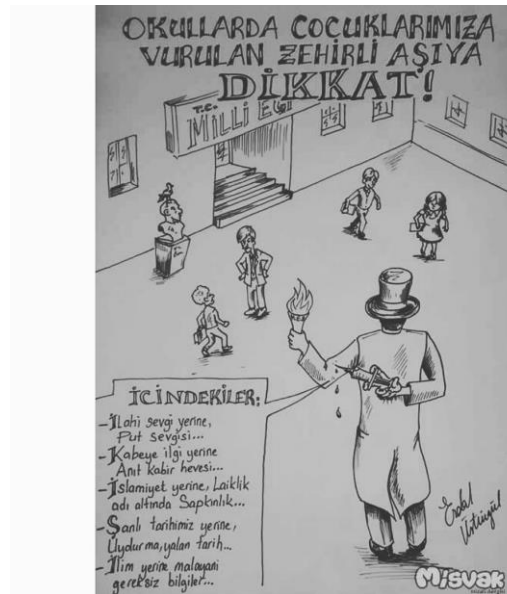 OKULLARDA ÇOCUKLARIMIZA
VURULAN ZEHİRLİ AŞIYA
DİKKAT!
T.C.
MİLLİ EĞİ
İÇİNDEKİLER:
-İlahi sevgi yerine,
Put sevgisi...
-Kabeye ilgi yerine
Anıt kabir hevesi...
-İslamiyet yerine, Laiklik
adı altında Sapkınlık...
-Şanlı tarihimiz yerine,
Uydurma, yalan tarih...
-İlim yerine malayani
gereksiz bilgiler...
Erdal
Üstüngül
Misvak